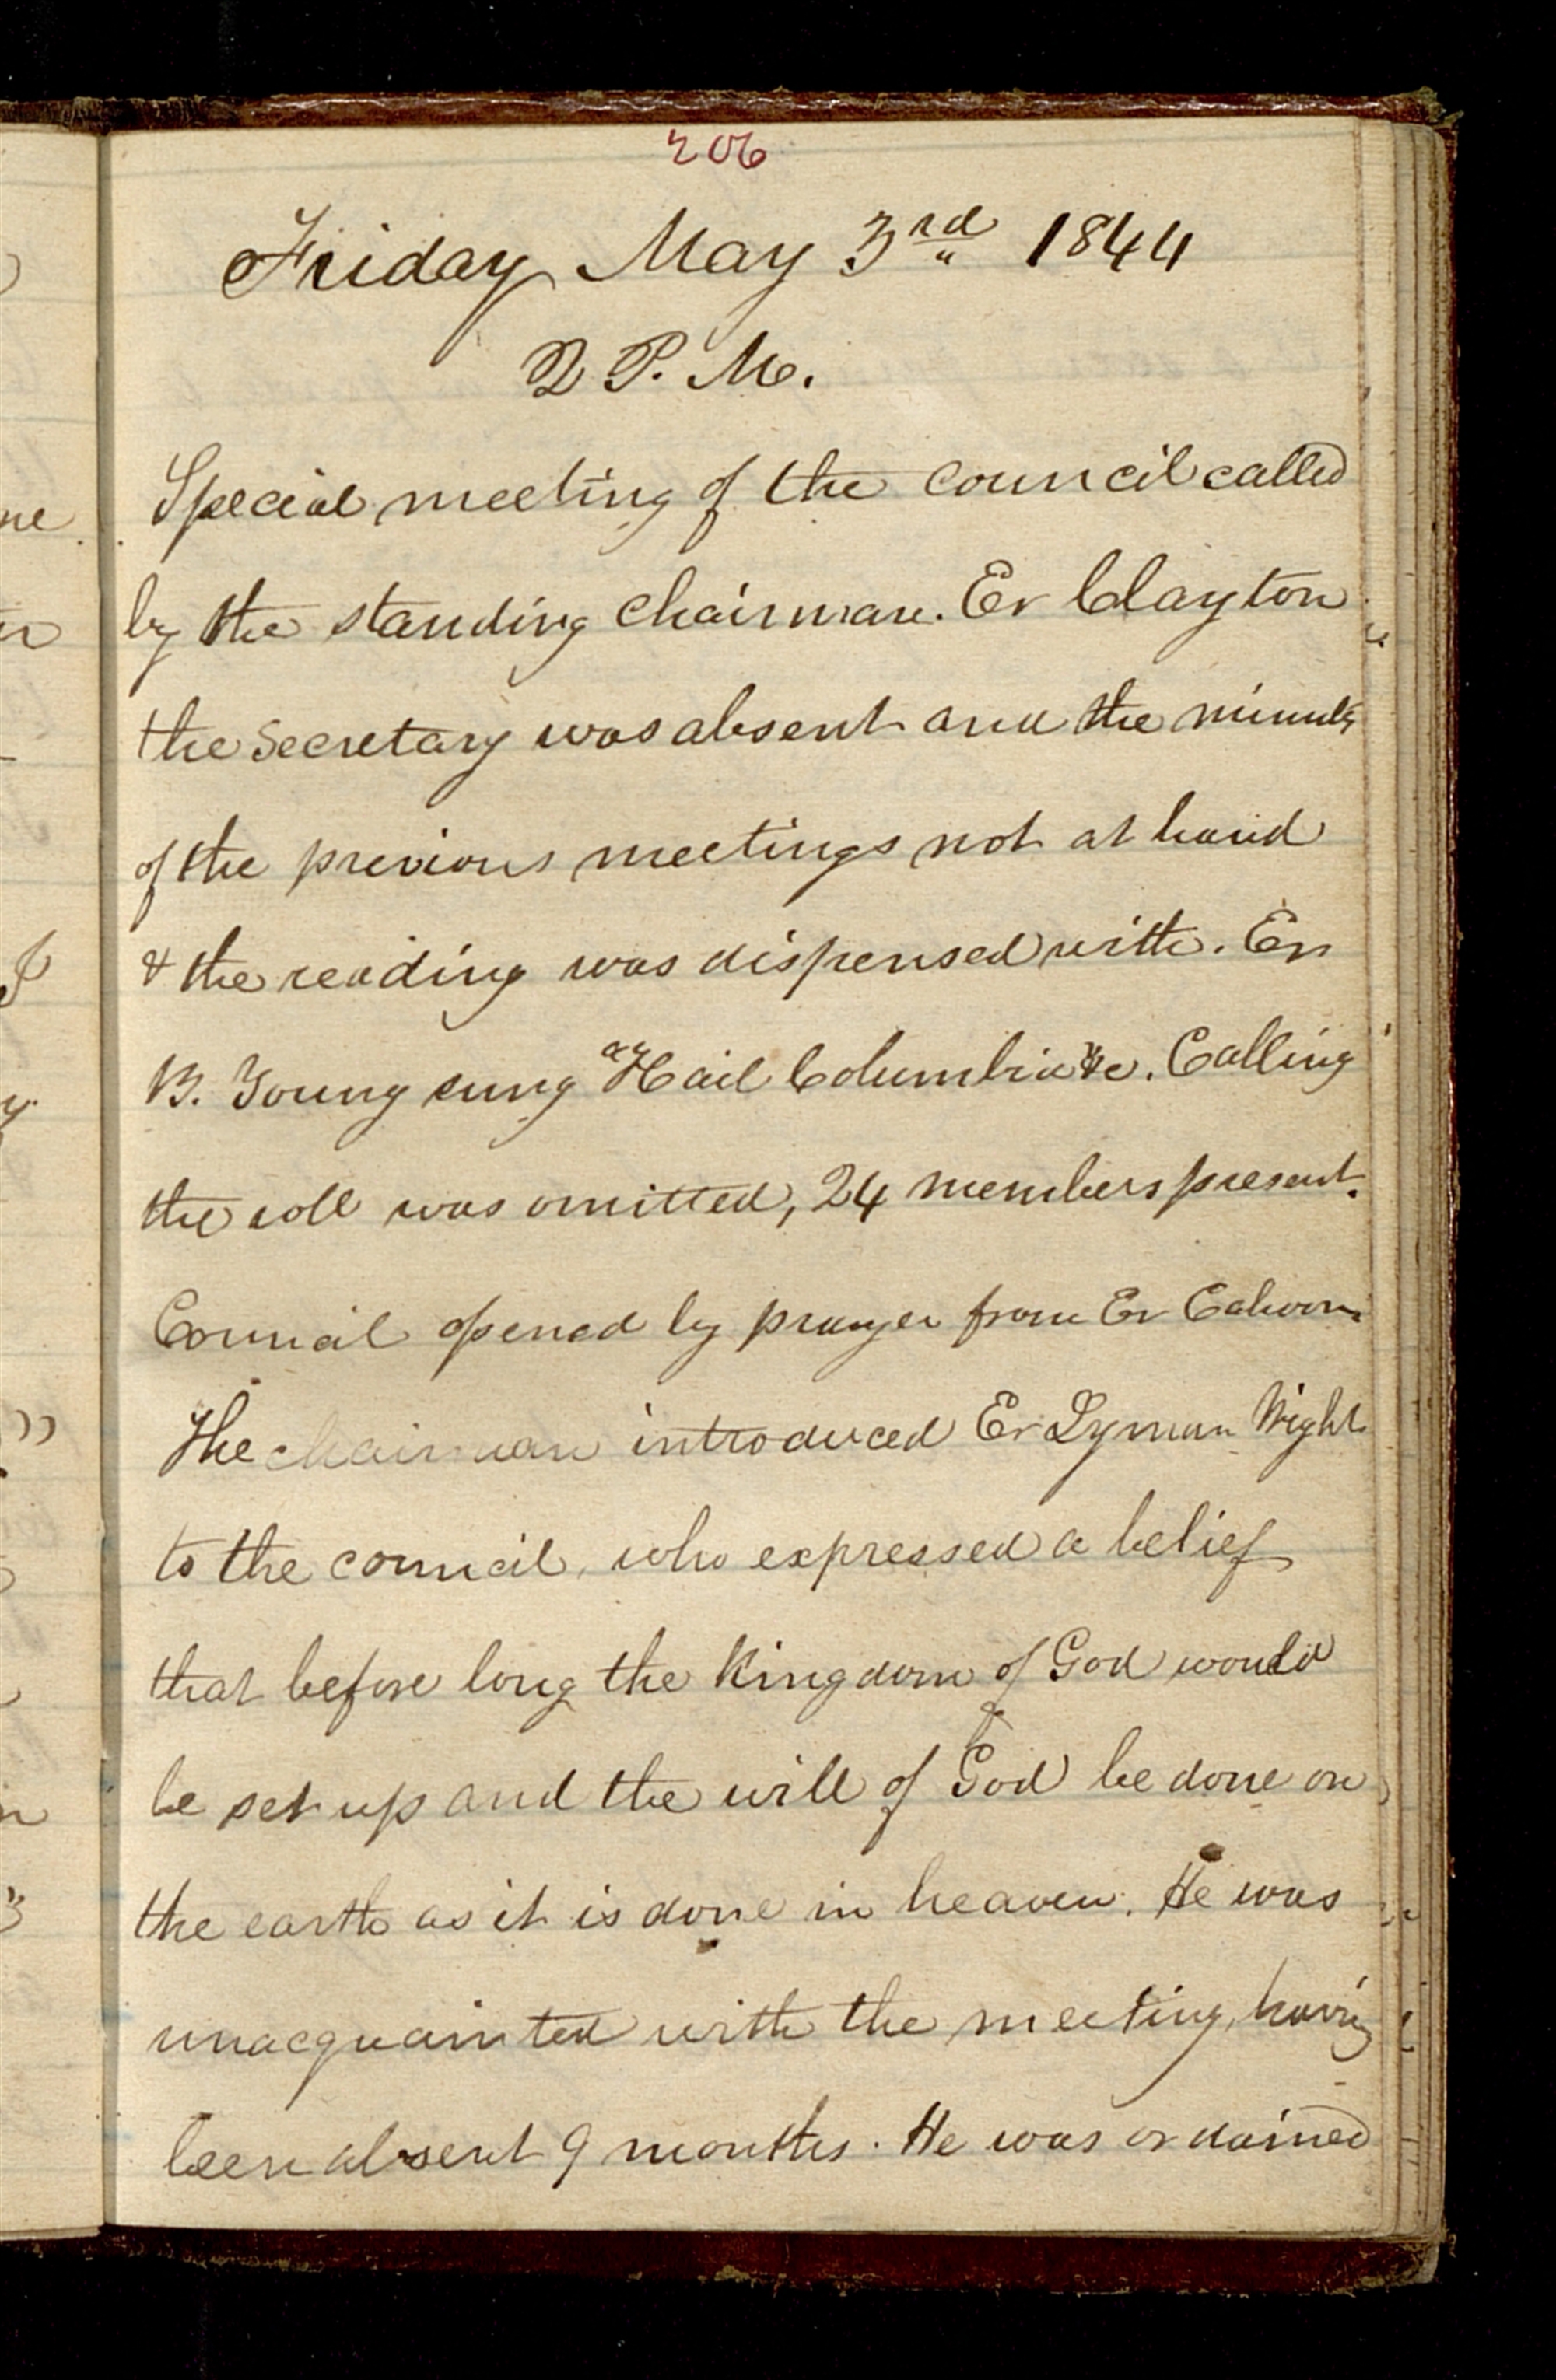 206
Friday May 3rd 1844
2 P. M.
Special meeting of the council called
by the standing chairman. Er Clayton
the Secretary was absent and the minutes
of the previous meetings not at hand
& the reading was dispensed with. Er
B. Young sung "Hail Columbia" &c. Calling
the roll was omitted, 24 members present.
Council opened by prayer from Er Cahoon.
The chairman introduced Er Lyman Wight
to the council, who expressed a belief
that before long the Kingdom of God would
be set up and the will of God be done on
the earth as it is done in heaven. He was
unacquainted with the meeting, having
been absent 9 months. He was ordained